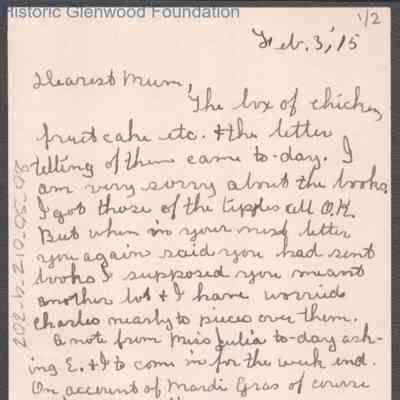 Historic Glenwood Foundation
1/2
Feb. 3, '15
Dearest Mum,
The box of chicken,
fruit cake etc. & the letter
telling of them came to-day. I
am very sorry about the books.
I got those of the all O.K.
But when in your next letter
you again said you had sent
books I supposed you meant
another lot & I have worried
Charles nearly to pieces over them.
A note from Miss Julia to-day ask-
ing E. & I to come in for the week end.
On account of Mardi Gras of course